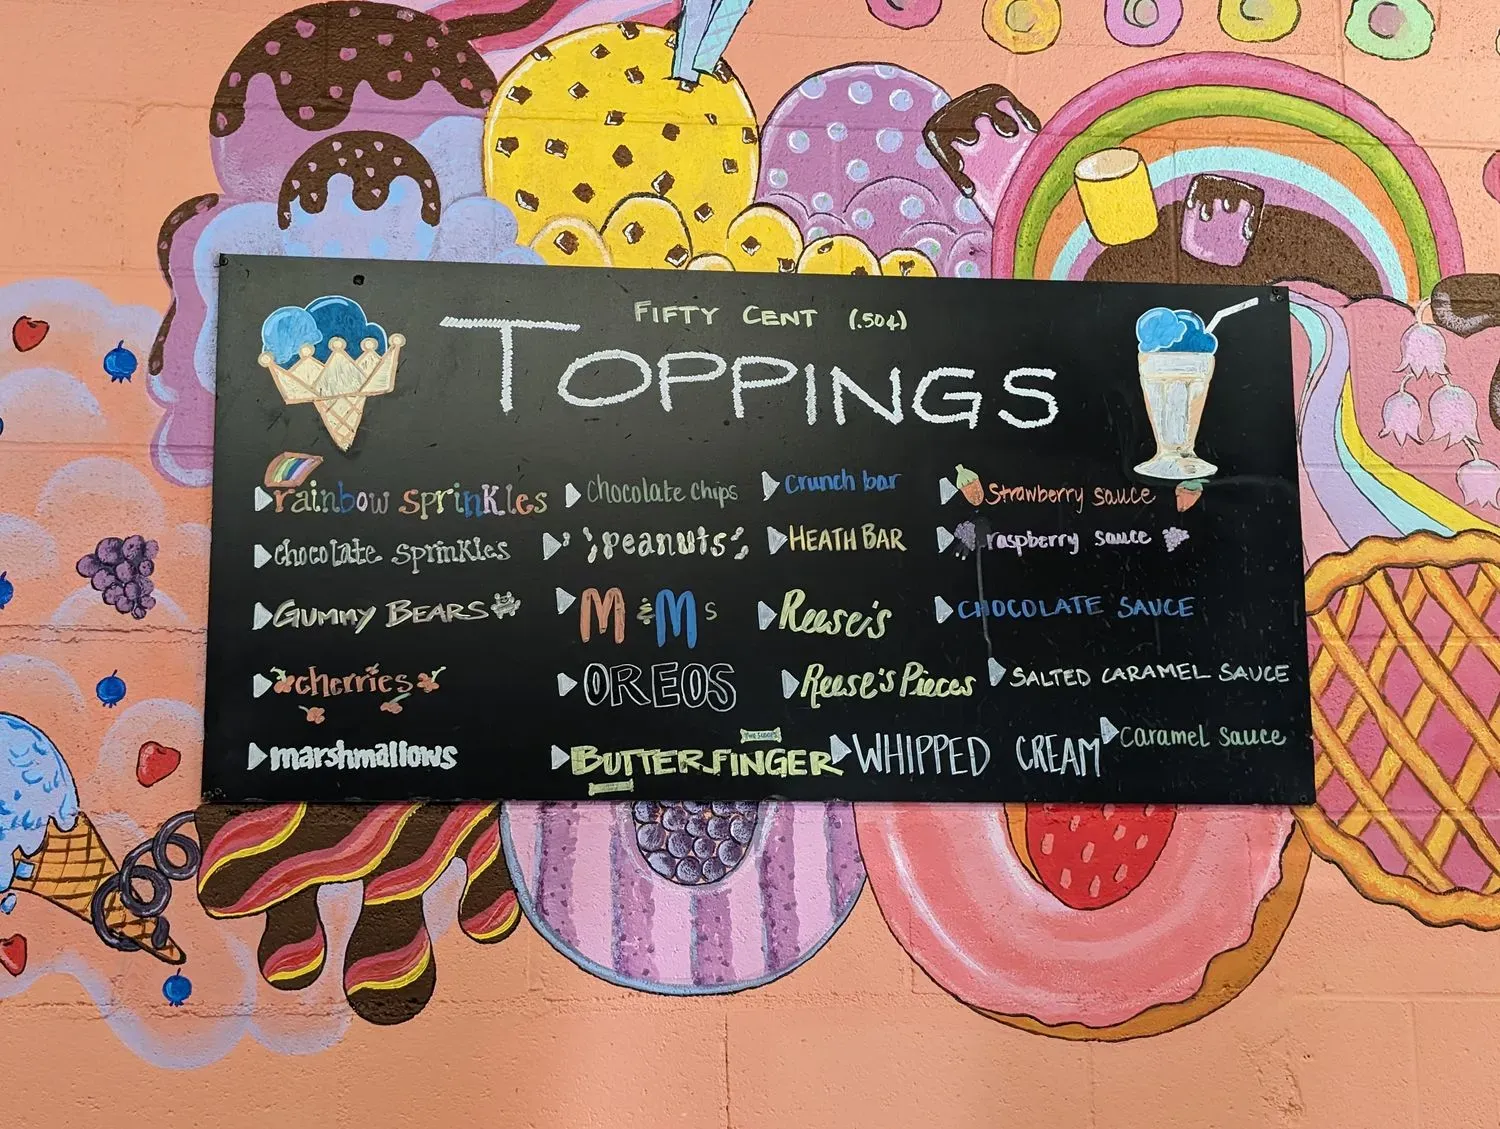 FIFTY CENT (.50¢)
TOPPINGS
rainbow sprinkles
chocolate sprinkles
GUMMY BEARS
cherries
marshmallows
Chocolate chips
Peanuts
M&Ms
OREOS
BUTTERFINGER
Crunch bar
HEATH BAR
Reese's
Reese's Pieces
WHIPPED CREAM
Strawberry sauce
raspberry sauce
CHOCOLATE SAUCE
SALTED CARAMEL SAUCE
Caramel sauce